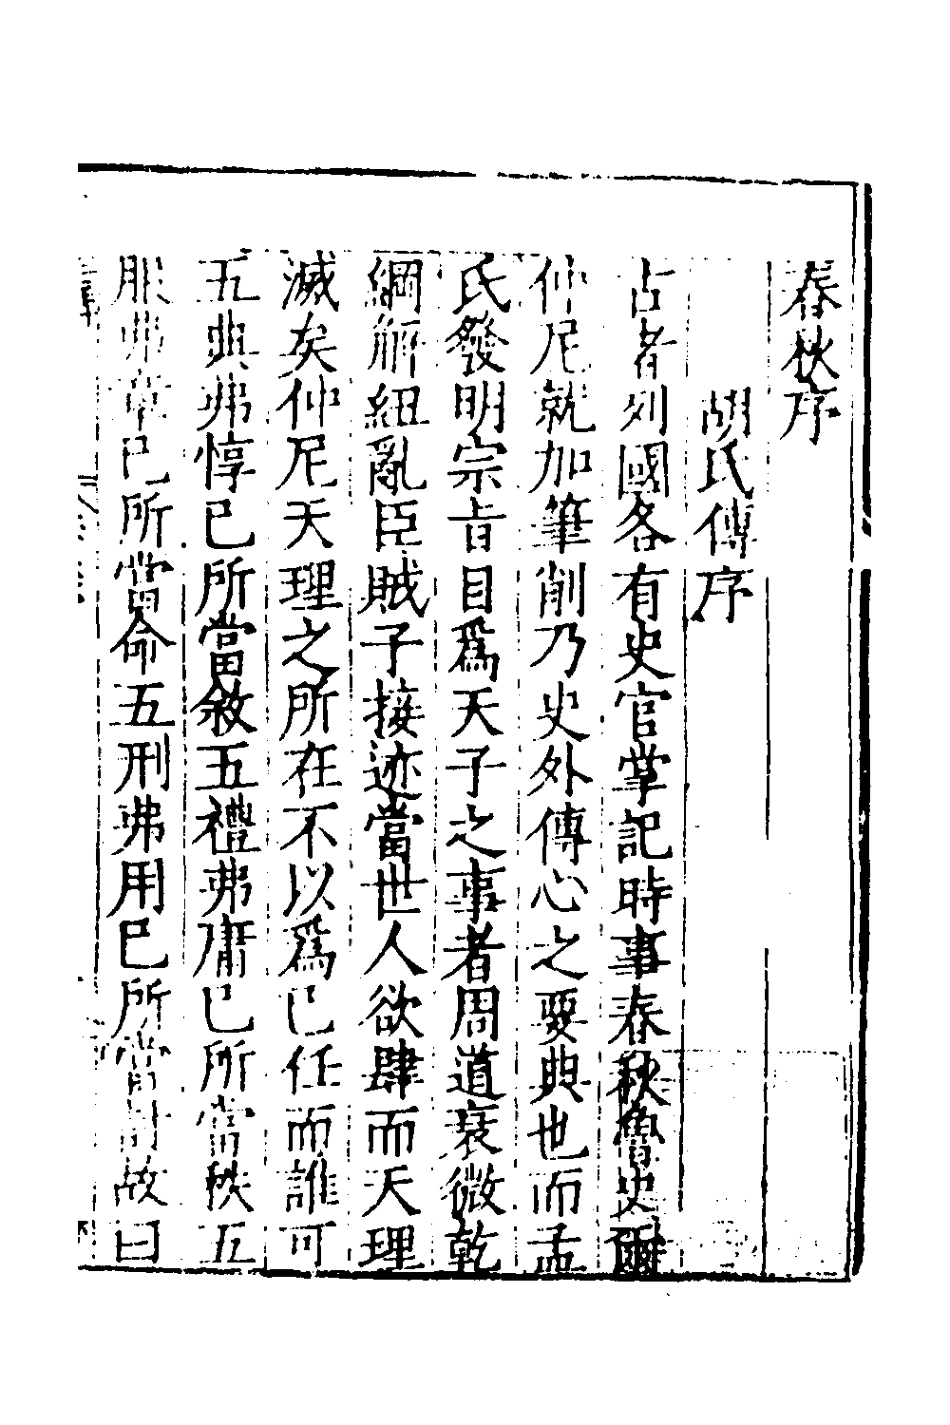 春秋序
胡氏傳序
古者列國各有史官掌記時事春秋魯史爾
仲尼就加筆削乃史外傳心之要典也而孟
氏發明宗㫖目爲天子之事者周道衰微乾
綱解紐亂臣賊子接迹當世人欲肆而天理
滅矣仲尼天理之所在不以爲已任而誰可
五典弗惇已所當敘五禮弗庸已所當秩五
服弗章已所當命五刑弗用已所當討故曰